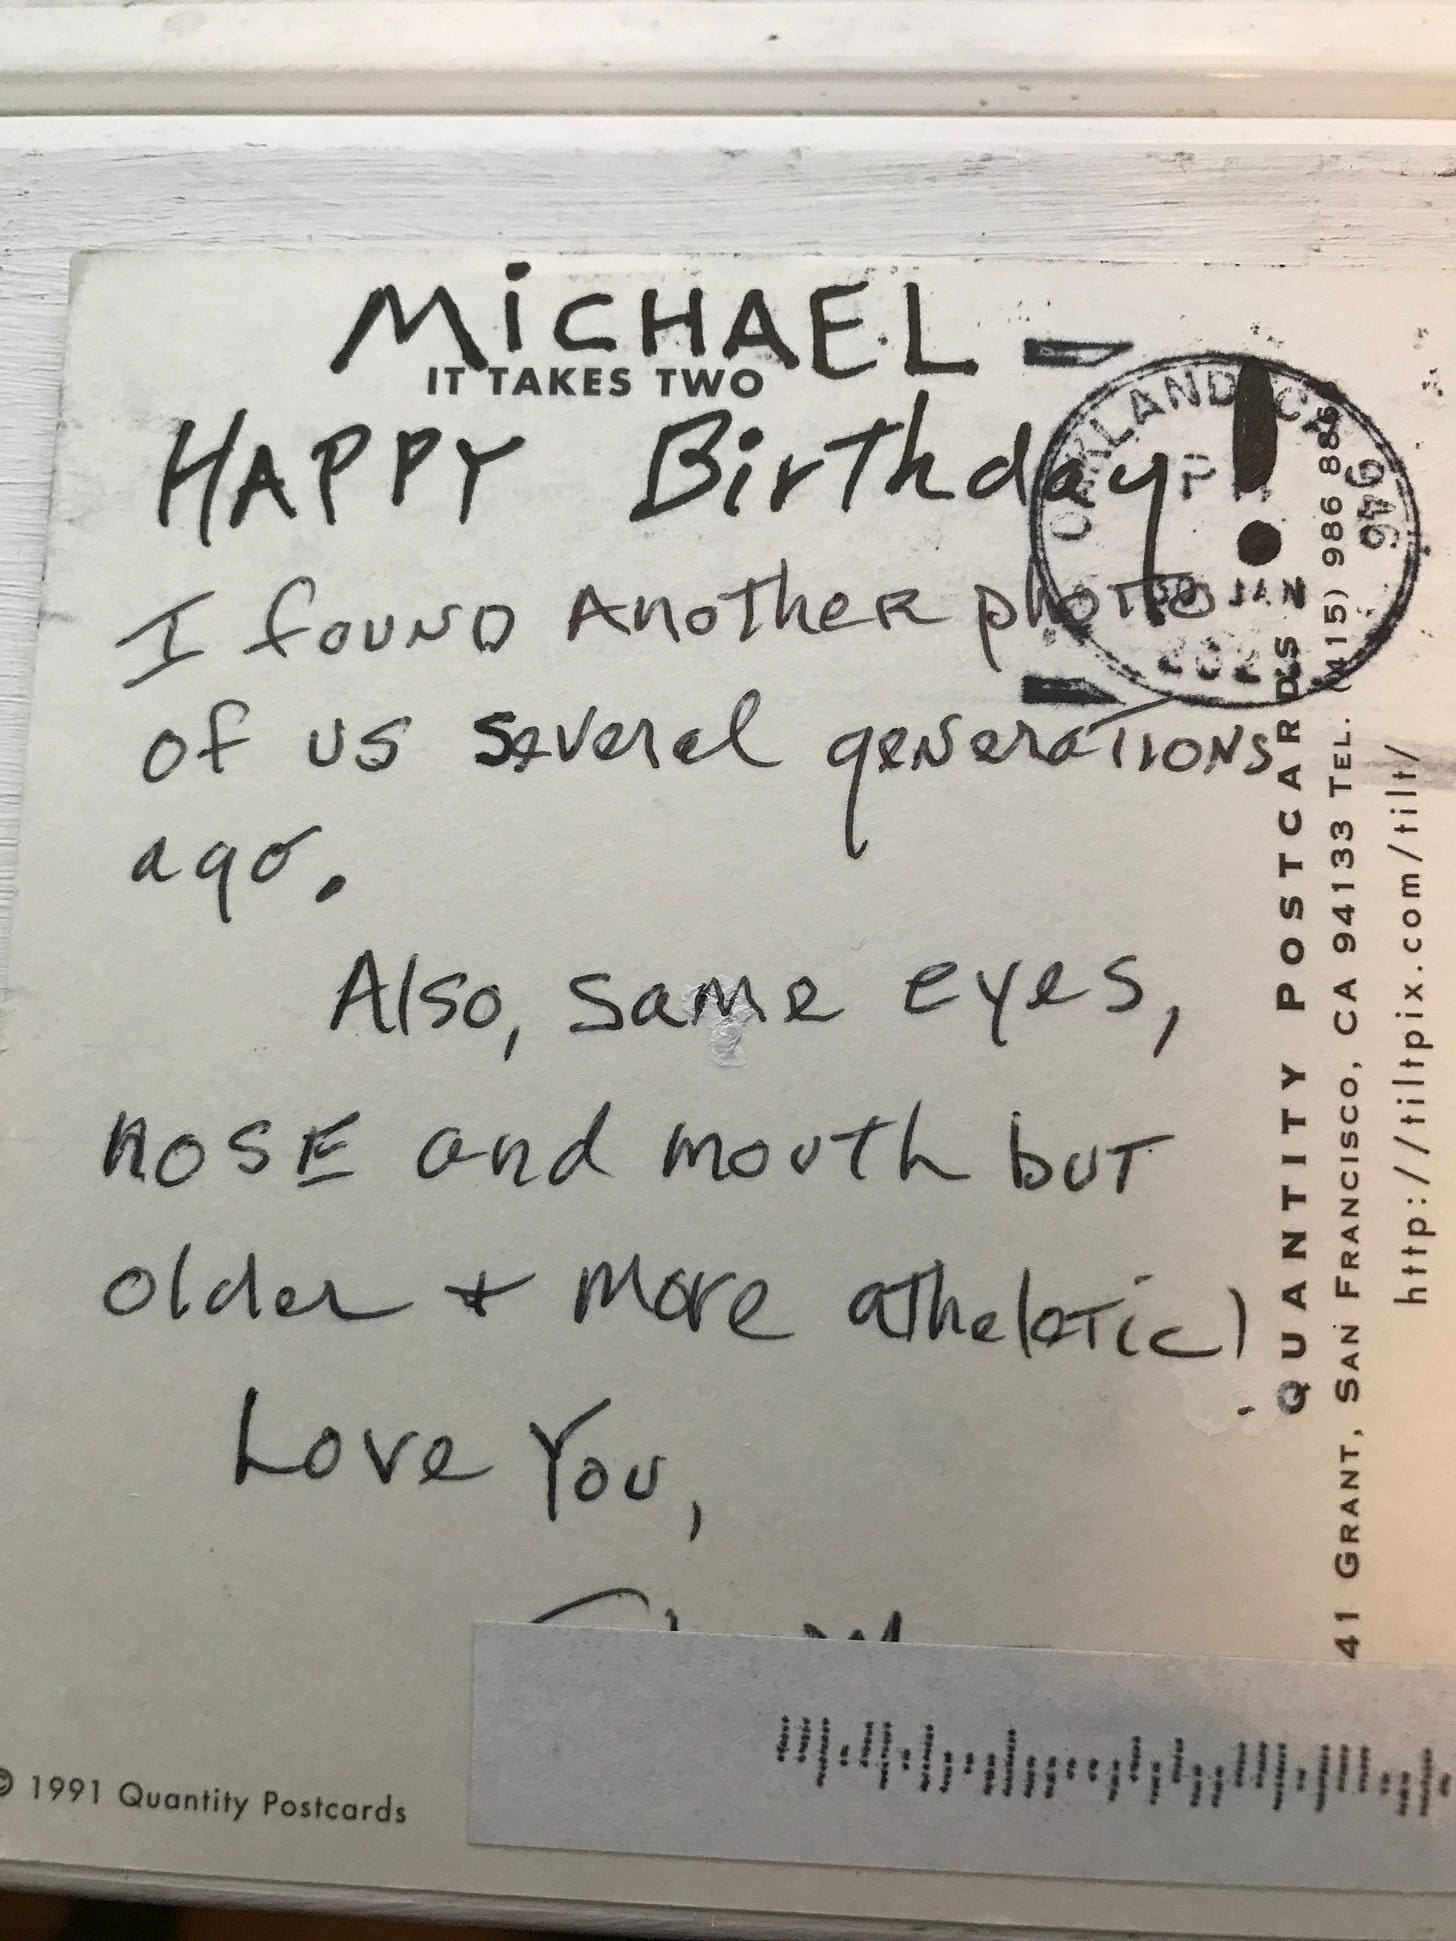 MiCHAEL
IT TAKES TWO
HAPPY Birthday!
I found Another photo
of us several generations
ago.
Also, same eyes,
nose and mouth but
older + more atheletic)
Love You,
OAKLAND CA 946
PM
30 JAN
QUANTITY POSTCARDS
41 GRANT, SAN FRANCISCO, CA 94133 TEL. (415) 986 886
http://tiltpix.com/tilt/
© 1991 Quantity Postcards